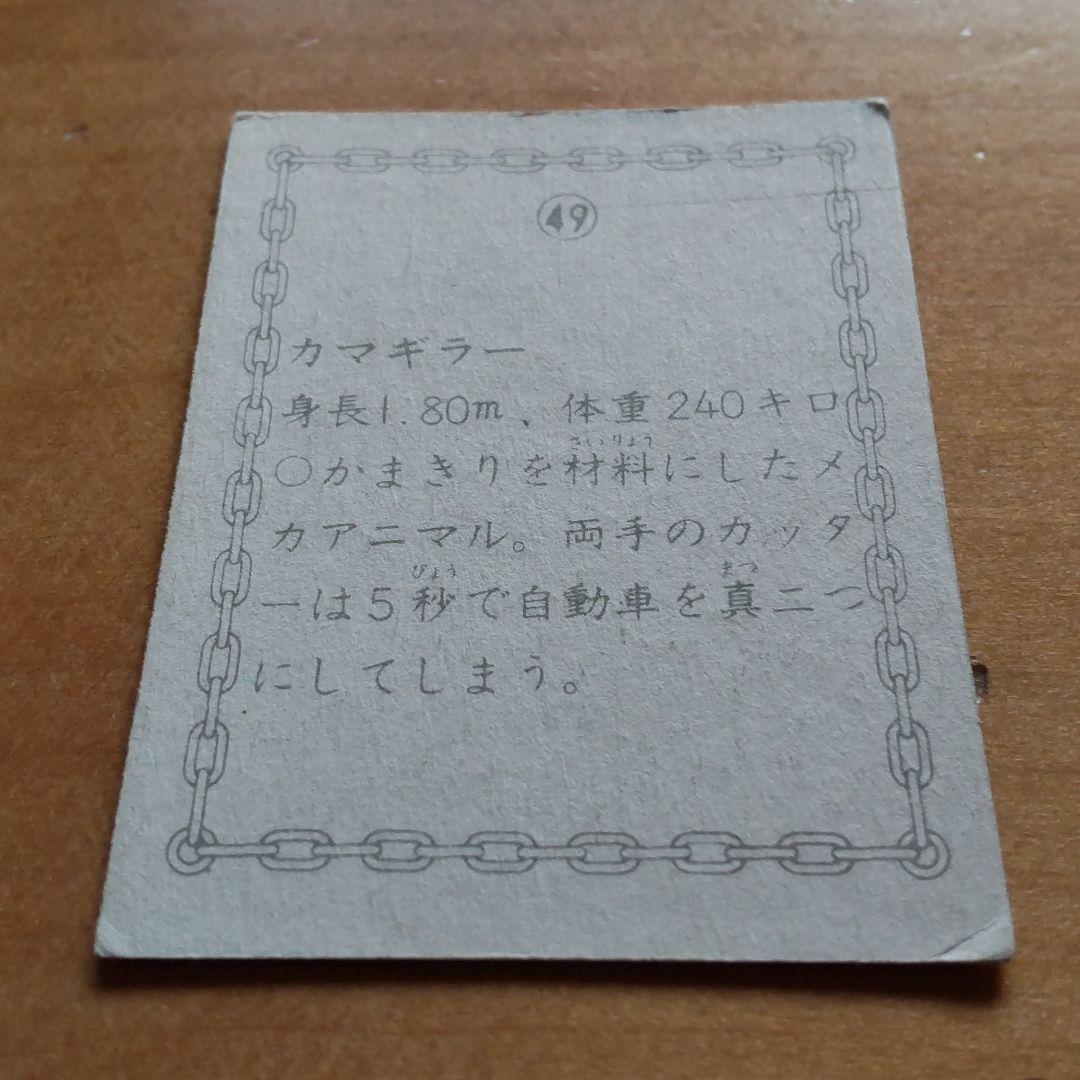 49
カマギラー
身長1.80m、体重240キロ
さいりょう
○かまきりを材料にしたメ
カアニマル。両手のカッタ
びょう まっ
ーは5秒で自動車を真二つ
にしてしまう。